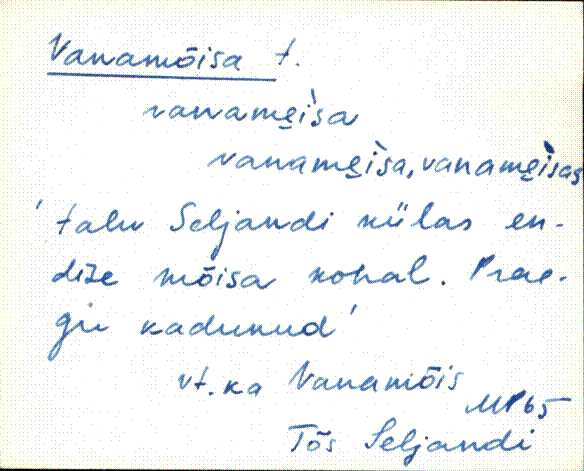 Vanamõisa t.
vaname̮ì̮sa
vaname̮ì̮sa, vaname̮ì̮sas
'talu Seljandi külas en-
dise mõisa kohal. Prae-
gu kadunud'
vt. ka Vanamõis
MP65
Tõs Seljandi